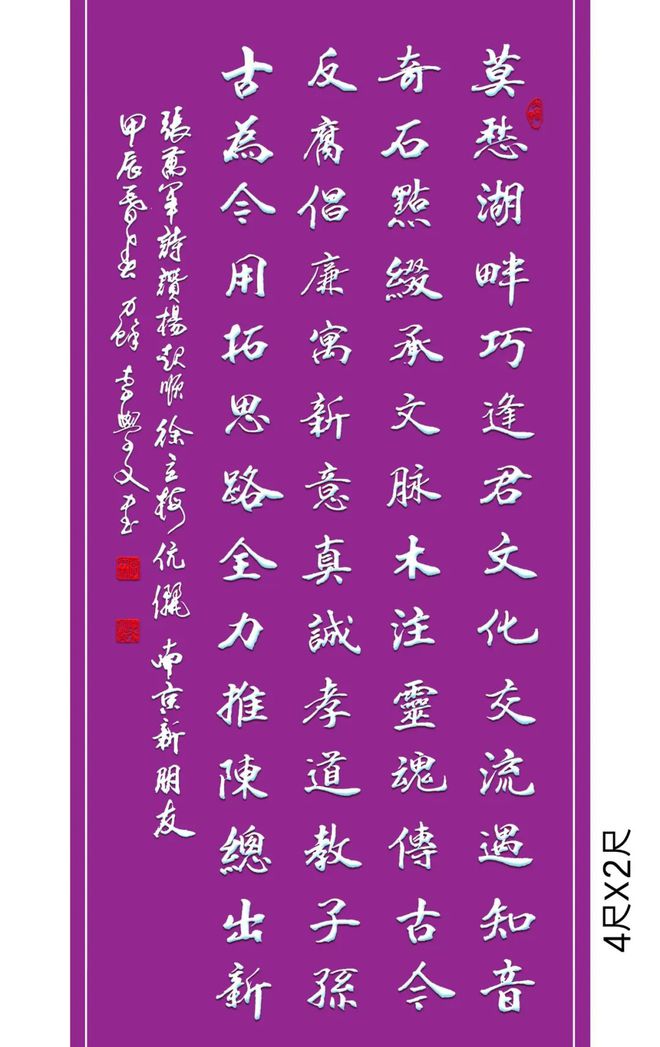 莫愁湖畔巧逢君文化交流遇知音
奇石點綴承文脈木注靈魂傳古今
反腐倡廉寓新意真誠孝道教子孫
古為今用拓思路全力推陳總出新
張萬軍詩讚楊起順徐立梅伉儷南京新朋友
甲辰春 李學文書
4尺X2尺